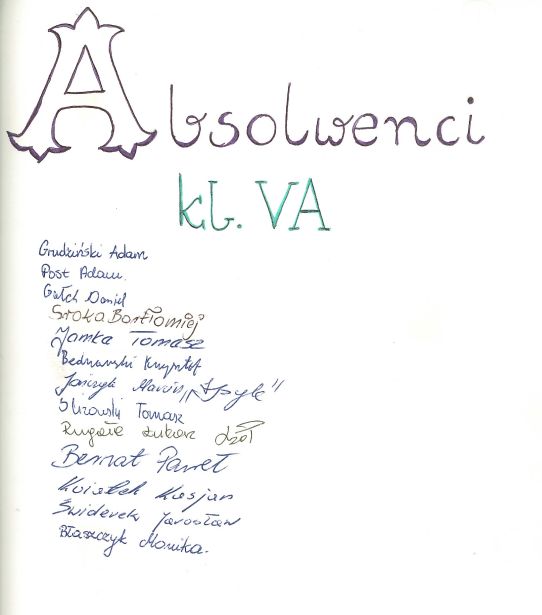 Absolwenci
kl. VA
Grudziński Adam
Post Adam.
Gałch Daniel
Sroka Bartłomiej
Jamka Tomasz
Bednarski Krzysztof
Jończyk Marcin
Tomasz
Rugała Łukasz
Bernat Paweł
Kwiatek Kasjan
Świderek Jarosław
Błaszczyk Monika.